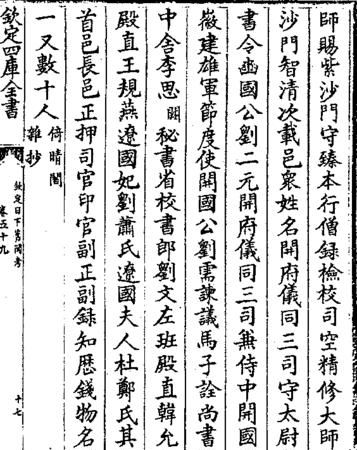 師賜紫沙門守臻本行僧録檢校司空精修大師
沙門智清次載邑衆姓名開府儀同三司守太尉
書令豳國公劉二元開府儀同三司兼侍中開國
薇建雄軍節度使開國公劉需諫議馬子詮尚書
中舍李思闕秘書省校書郎劉文左班殿直韓允
殿直王規燕遼國妃劉蕭氏遼國夫人杜鄭氏其
首邑長邑正押司官印官副正副録知歴錢物名
一又數十人倚晴閣雜抄
欽定四庫全書
欽定日下舊聞考
卷五十九
十七